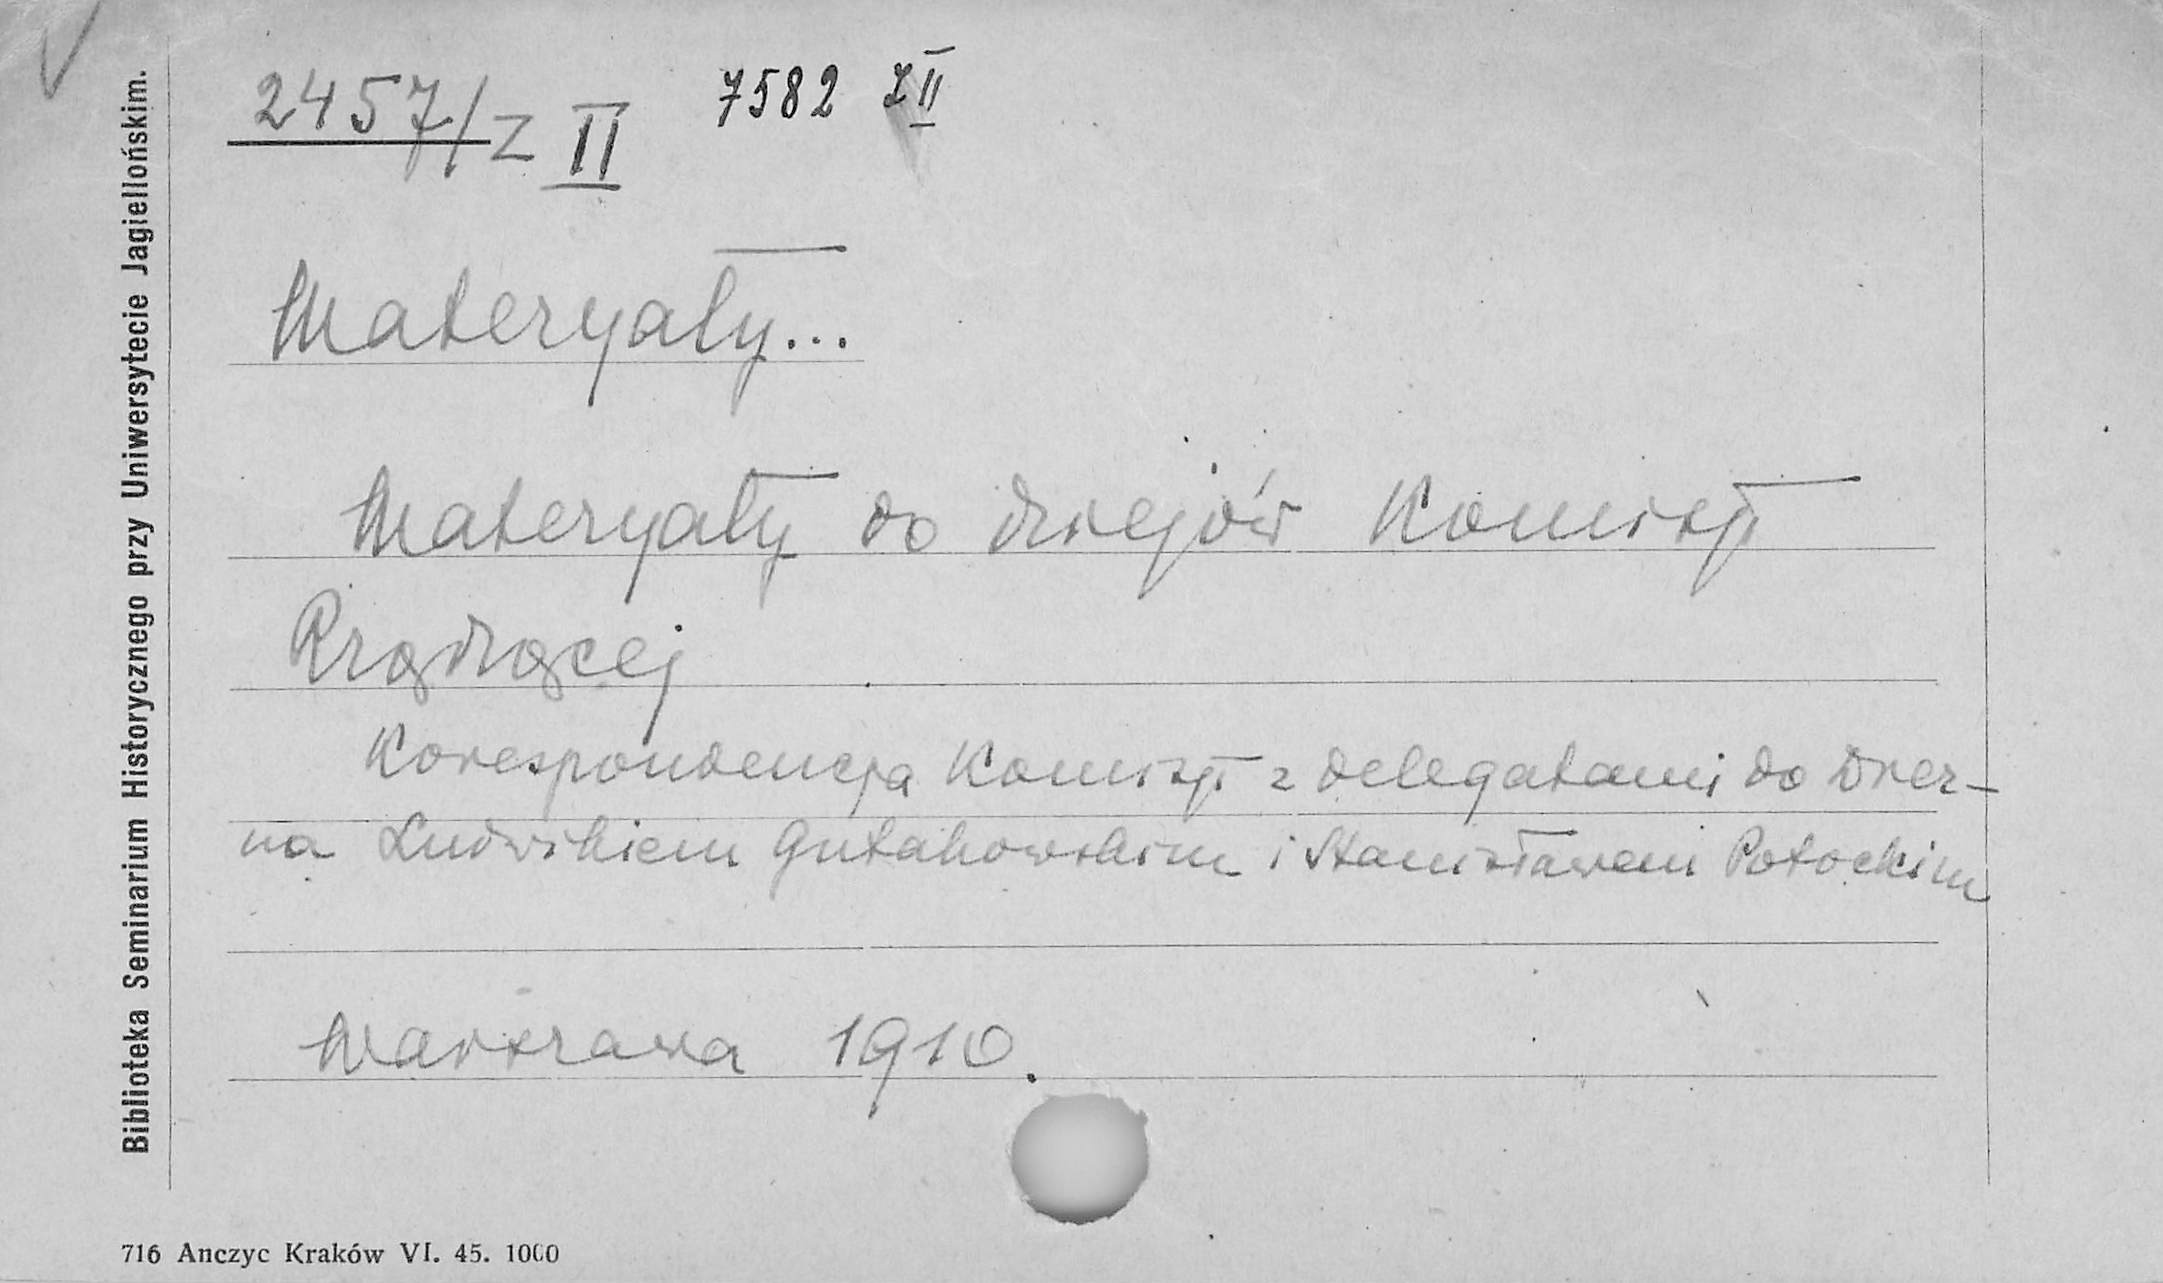 2457/Z II 7582 Z II
Materyały...
Materyały do dziejów Komisji
Rządzącej
Korespondencja Komisji z delegatami do Drez-
na Ludwikiem Gutakowskim i Stanisławem Potockim
Warszawa 1910.
Biblioteka Seminarium Historycznego przy Uniwersytecie Jagiellońskim.
716 Anczyc Kraków VI. 45. 1000